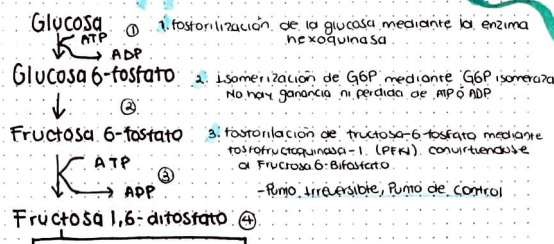 Glucosa ① 1. fosforilización de la glucosa mediante la enzima
ATP hexoquinasa
ADP
Glucosa 6-fosfato 2. Isomerización de G6P mediante G6P isomeraza
No hay ganancia ni perdida de ATP ó ADP
②
Fructosa 6-fosfato 3. fosforilación de fructosa-6-fosfato mediante
fosfofructoquinasa-1 (PFK) convirtiendose
ATP a Fructosa 6-Bifosfato
③
ADP -Punto irreversible, Punto de control
Fructosa 1,6-difosfato ④